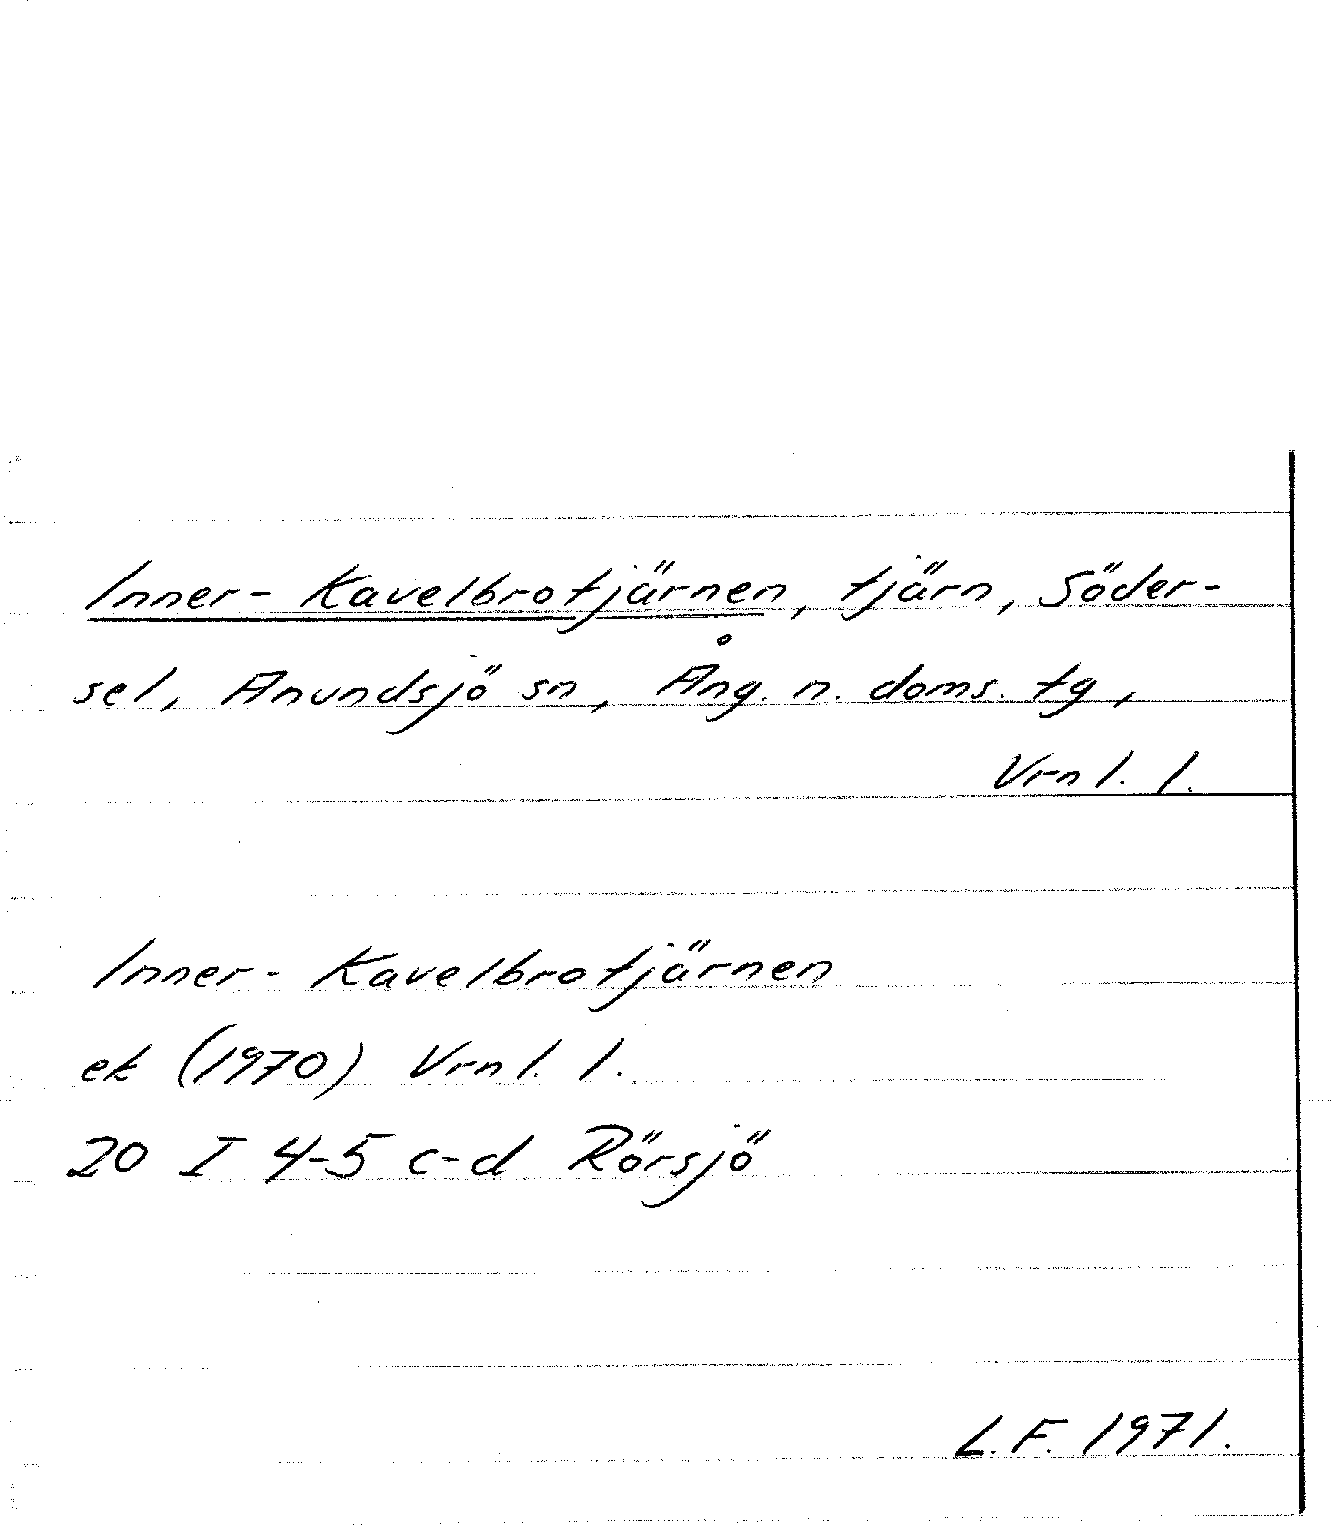 Inner-Kavelbrotjärnen, tjärn, Söder-
sel, Anundsjö sn, Ång. n. doms. tg,
Vrnl. l.
Inner-Kavelbrotjärnen
ek (1970) Vrnl. l.
20 I 4-5 c-d Rörsjö
L.F. 1971.